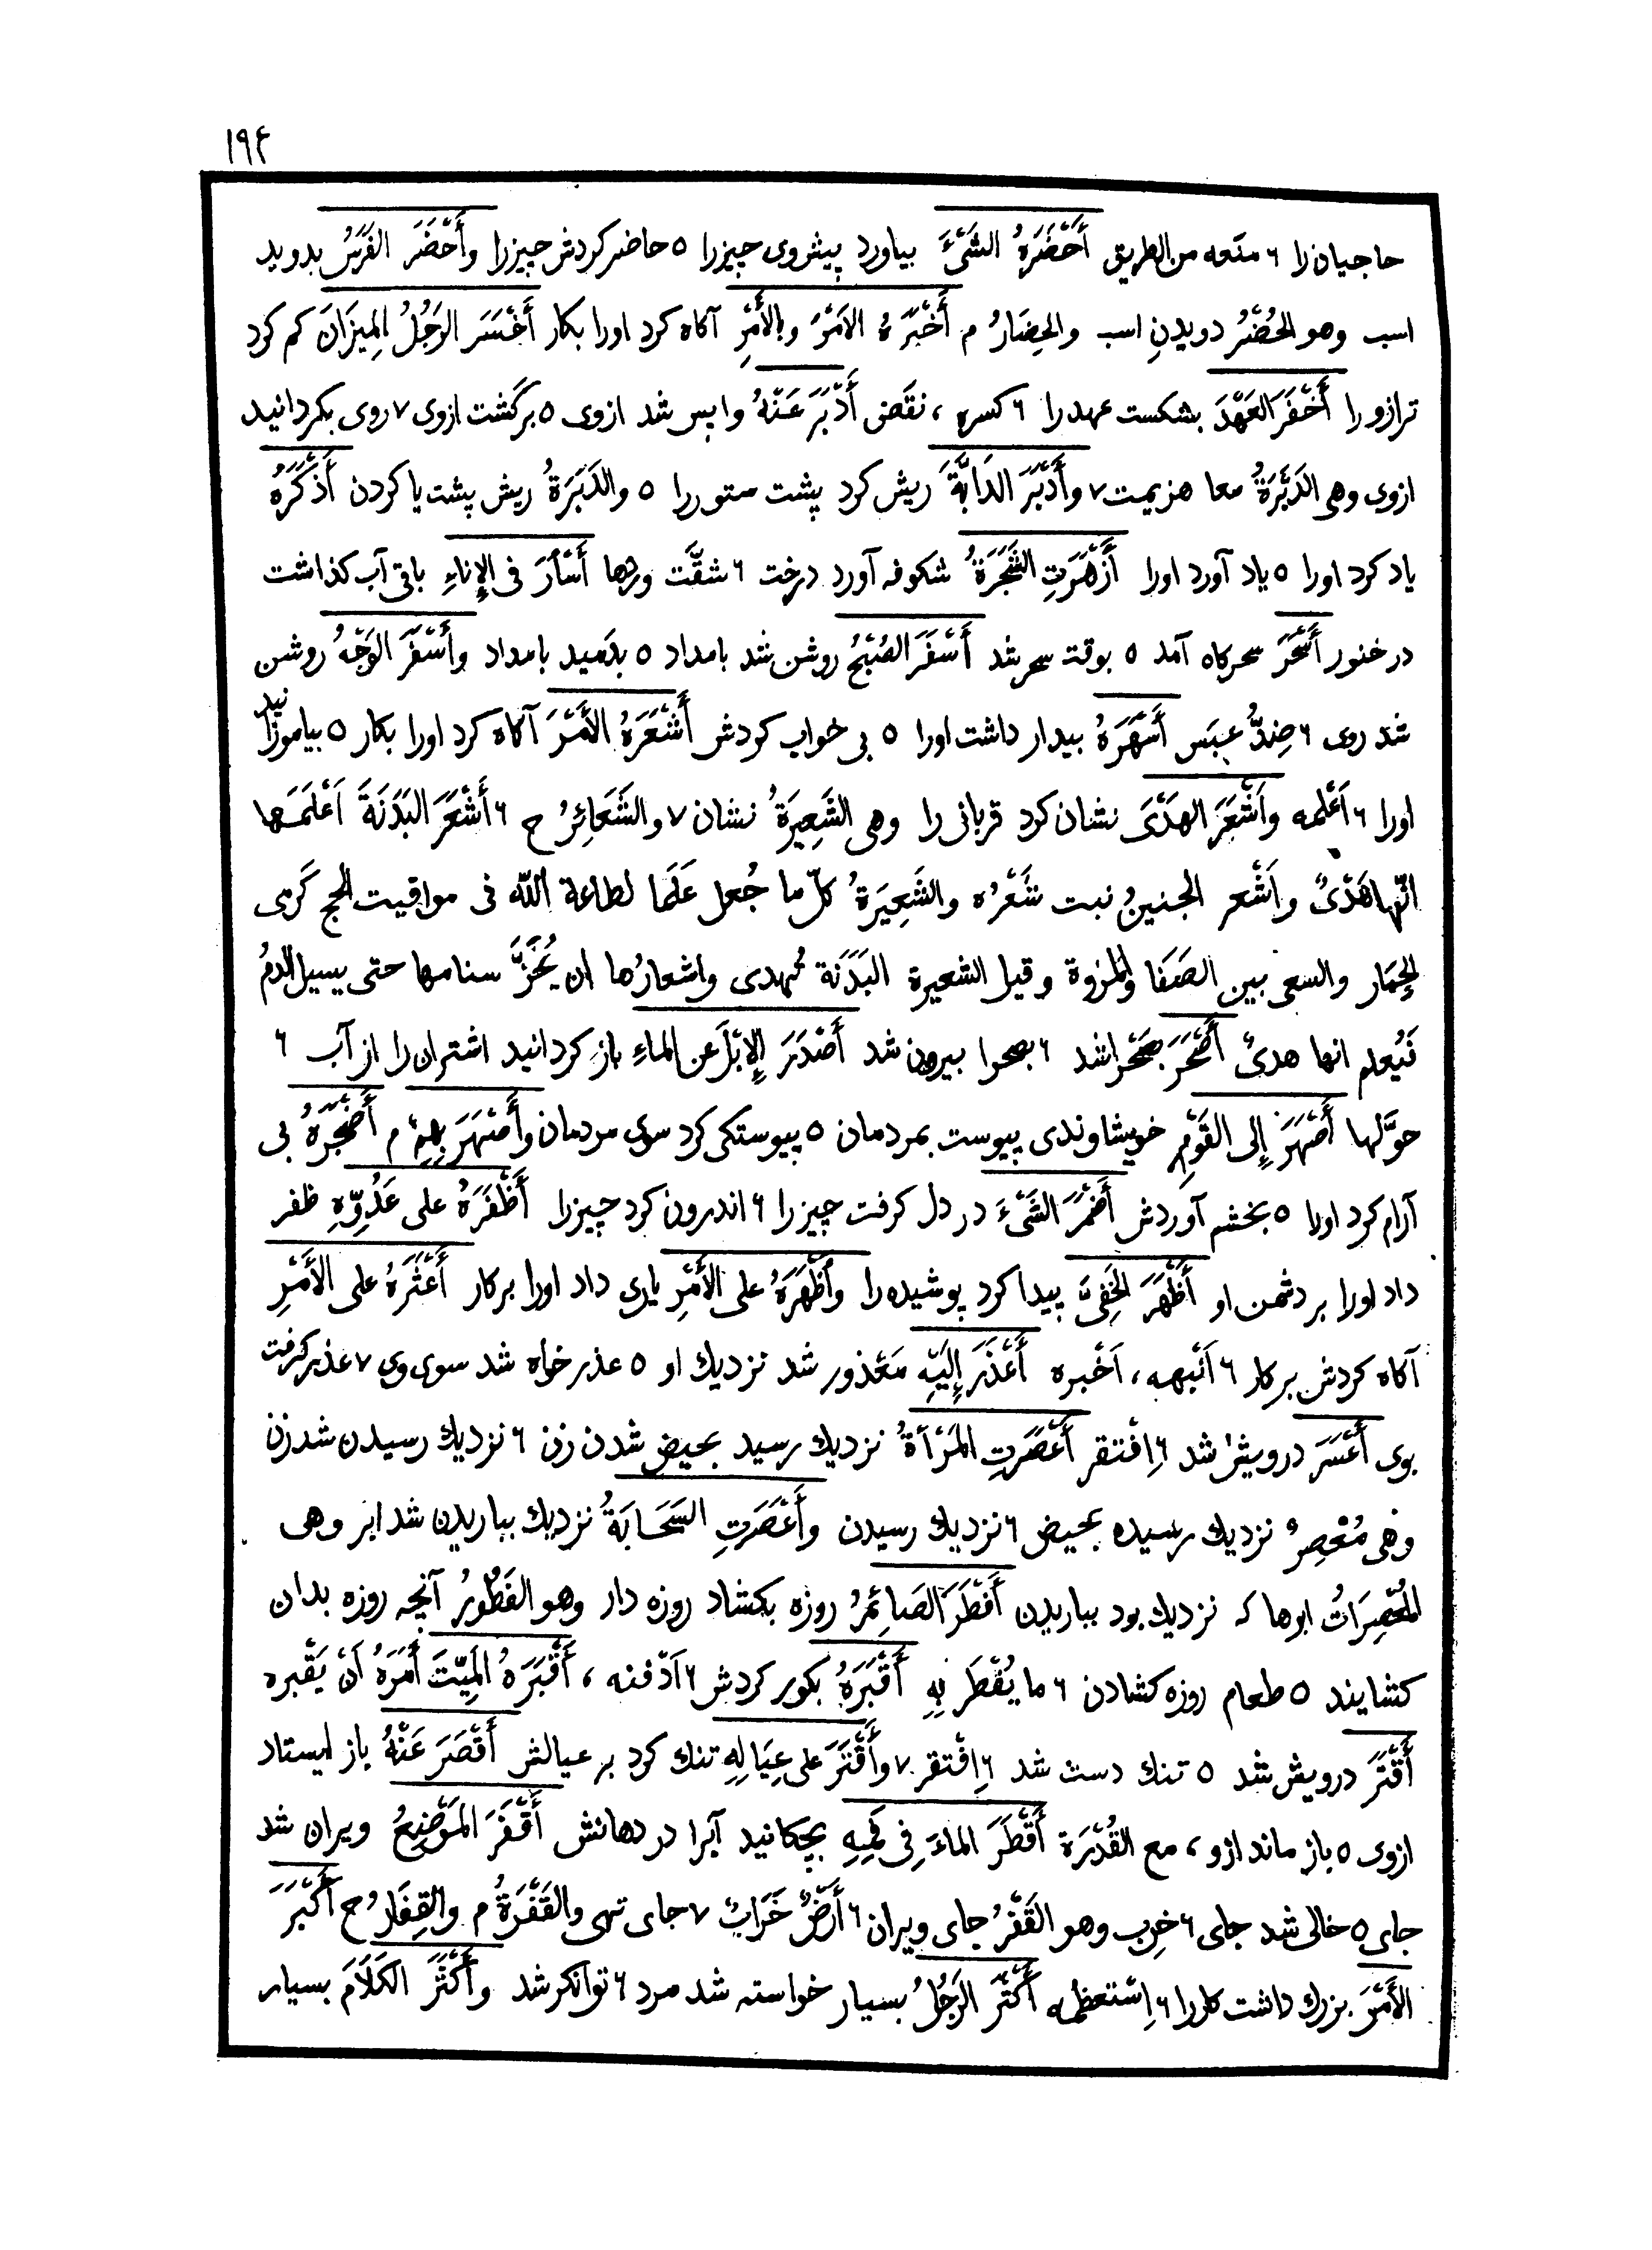 ١٩٤
حاجیان را ٦ منّعه من الطریق أَحْضَرَهُ الشَیْءَ بیاورد پیش وی چیز را ٥ حاضر کردش چیز را وأَحْضَرَ الفَرَسُ بدوید
اسب وهو الحُضْرُ دویدنِ اسب والحِضَارُ م أَخْبَرَهُ الاَمْرَ وبالأَمْرِ آکاه کرد اورا بکار أَخْسَرَ الرَجُلُ المِیزَانَ کم کرد
ترازو را أَخْفَرَ العَهْدَ بشکست عهد را ٦ کسره ، نقَض أَدْبَرَ عَنْهُ واپس شد ازوی ٥ برگشت ازوی ٧ روی بکردانید
ازوی وهی الدَبْرَةُ معا هزیمت ٧ وأَدْبَرَ الدَابَّةَ ریش کرد پشت ستور را ٥ والدَبَرَةُ ریش پشت یا کردن أَذْکَرَهُ
یاد کرد اورا ٥ یاد آورد اورا أَزْهَرَتِ الشَجَرَةُ شکوفه آورد درخت ٦ شقّت وردها أَسْأَرَ فی الإِناءِ باقی آب کذاشت
در خنور أَسْحَرَ سحرکاه آمد ٥ بوقت سحر شد أَسْفَرَ الصُبْحُ روشن شد بامداد ٥ بدمید بامداد وأَسْفَرَ الوَجْهُ روشن
شد روی ٦ ضِدُّ عبَس أَسْهَرَهُ بیدار داشت اورا ٥ بی خواب کردش أَشْعَرَهُ الأَمْرَ آکاه کرد اورا بکار ٥ بیاموزانید
اورا ٦ اَعْلمه وأَشْعَرَ الهَدْیَ نشان کرد قربانی را وهی الشَعِیرَةُ نشان ٧ والشَعَائِرُ ح ٦ أَشْعَرَ البَدَنَةَ اَعْلَمَها
انّها هَدْیٌ وأَشْعر الجنینُ نبت شَعْرُه والشَعِیرَةُ کلّ ما جُعل عَلَما لطاعة الله فی مواقیت الحج کَرَمی
الجِمَار والسعی بین الصَفَا والمَرْوة وقیل الشعیرة البَدَنَة تُهدی واشعارُها ان یُحَزَّ سنامها حتی یسیل الدمُ
فَیُعلم انها هدیٌ أَصْحَرَ بصَحْرا شد ٦ بصحرا بیرون شد أَصْدَرَ الإِبْلَ عن الماءِ باز کردانید اشتران را از آب ٦
حوَّلها أَصْهَرَ إِلی القَوْمِ خویشاوندی پیوست بمردمان ٥ پیوستکی کرد سوی مردمان وأَصْهَرَ بِهِمْ م أَضْجَرَهُ بی
آرام کرد اورا ٥ بخشم آوردش أَضْمَرَ الشَیْءَ در دل کرفت چیز را ٦ اندرون کرد چیز را أَظْفَرَهُ علی عَدُوِّهِ ظفر
داد اورا بر دشمن او أَظْهَرَ الخَفِیَّ پیدا کرد پوشیده را وأَظْهَرَهُ علی الأَمْرِ یاری داد اورا بر کار أَعْثَرَهُ علی الأَمْرِ
آکاه کردش بر کار ٦ اَنْبهه ، اَخْبره أَعْذَرَ إِلَیْهِ مَعْذور شد نزدیك او ٥ عذر خواه شد سوی وی ٧ عذر کرفت
بوی أَعْسَرَ درویش شد ٦ اِفْتقر أَعْصَرَتِ المَرْأَةُ نزدیك رسید بحیض شدن زن ٦ نزدیك رسیدن شد زن
وهی مُعْصِرٌ نزدیك رسیده بحیض ٦ نزدیك رسیدن وأَعْصَرَتِ السَحَابَةُ نزدیك بباریدن شد ابر وهی
المُعْصِرَاتُ ابرها که نزدیك بود بباریدن أَفْطَرَ الصَائِمُ روزه بکشاد روزه دار وهو الفَطُورُ آنچه روزه بدان
کشایند ٥ طعام روزه کشادن ٦ ما یُفْطَر بِهِ أَقْبَرَهُ بکور کردش ٦ اَدْفنه ، أَقْبَرَهُ المَیِّتَ أَمَرَهُ اَنْ یَقْبره
أَقْتَرَ درویش شد ٥ تنك دست شد ٦ اِفْتقر ٧ وأَقْتَرَ علی عِیَالِهِ تنك کرد بر عیالش أَقْصَرَ عَنْهُ باز ایستاد
ازوی ٥ باز ماند ازو ، مع القُدْرَة أَقْطَرَ الماءَ فی فَمِهِ بچکانید آبرا در دهانش أَقْفَرَ المَوْضِعُ ویران شد
جای ٥ خالی شد جای ٦ خرِب وهو القَفْرُ جای ویران ٦ أَرْضٌ خَرَابٌ ٧ جای تهی والقَفْرَةُ م والقِفَارُ ح أَکْبَرَ
الأَمْرَ بزرك داشت کار را ٦ اِسْتعظمه أَکْثَرَ الرَجُلُ بسیار خواسته شد مرد ٦ توانکر شد وأَکْثَرَ الکَلَامَ بسیار